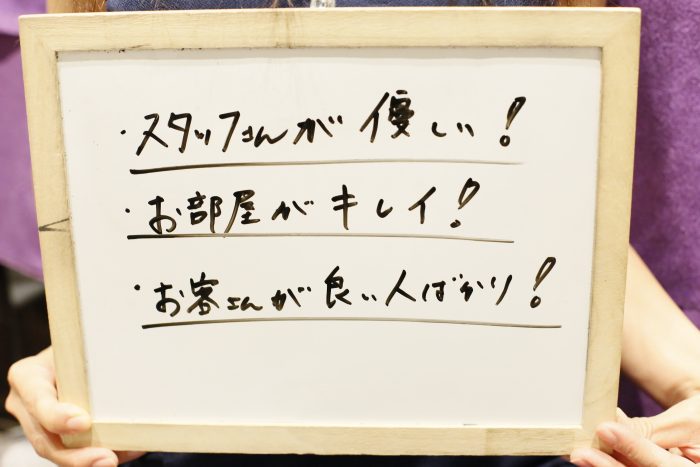 ・スタッフさんが優しい!
・お部屋がキレイ!
・お客さんが良い人ばかり!